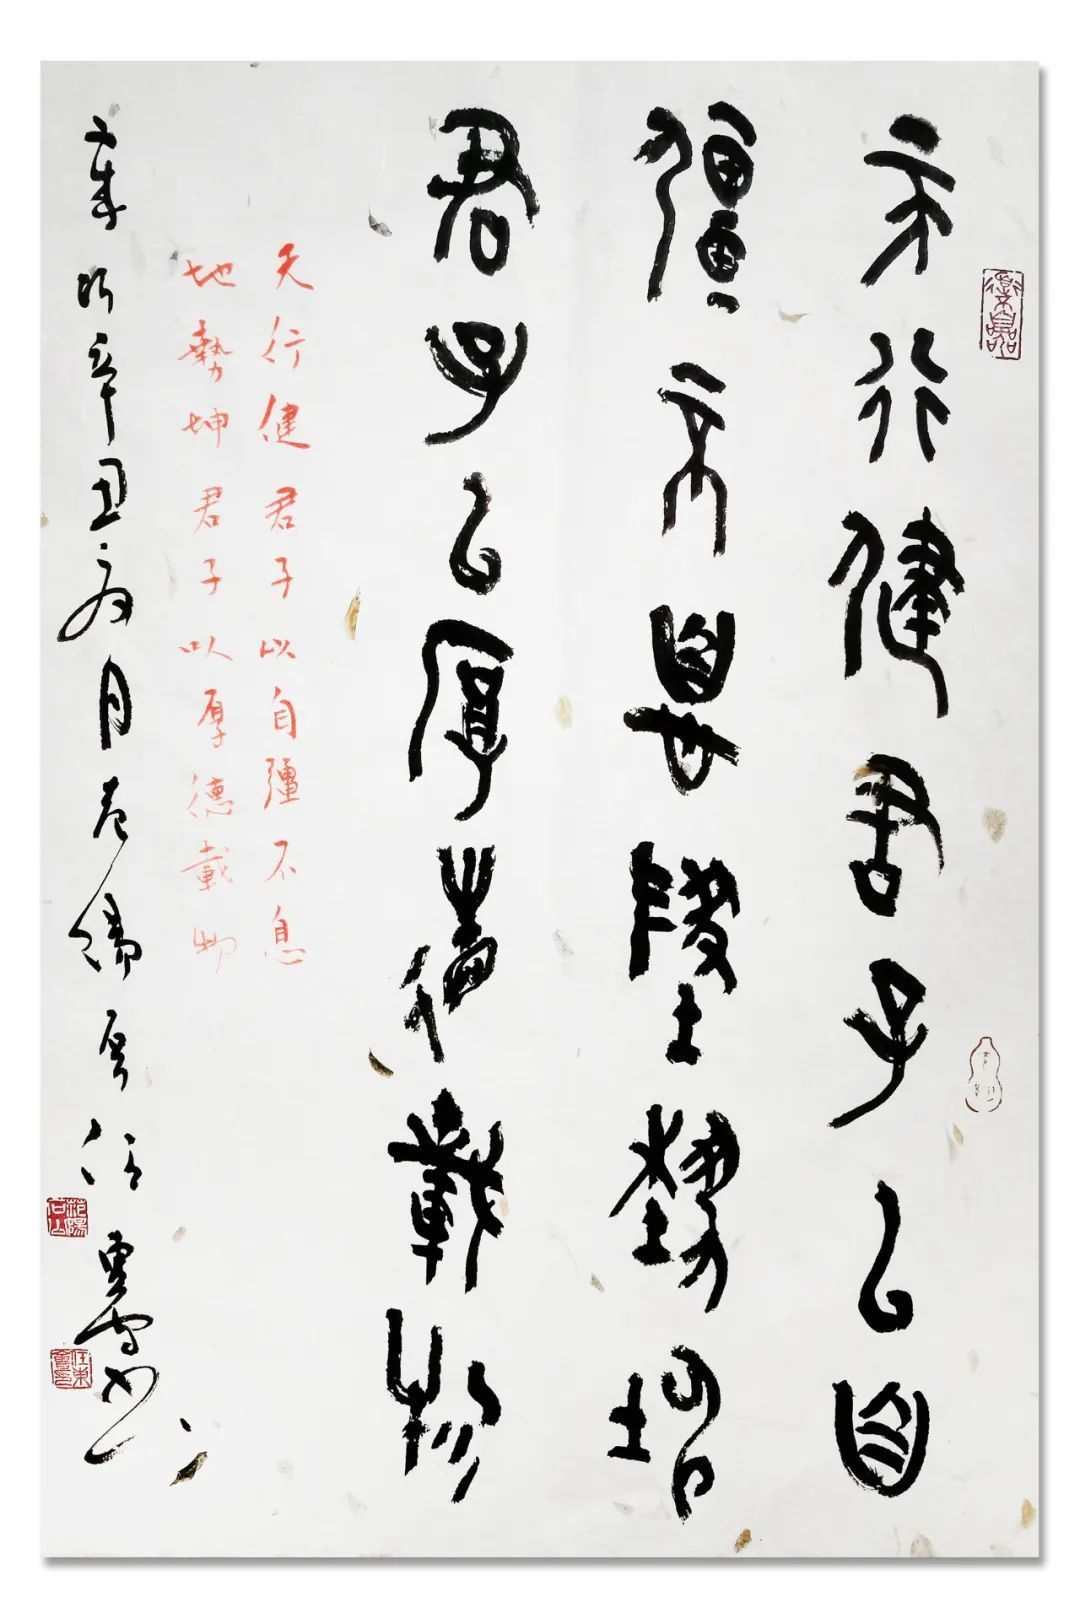 天行健君子以自
彊不息地勢坤
君子以厚德載物
天行健君子以自彊不息
地勢坤君子以厚德載物
辛丑 月 任
范陽石山